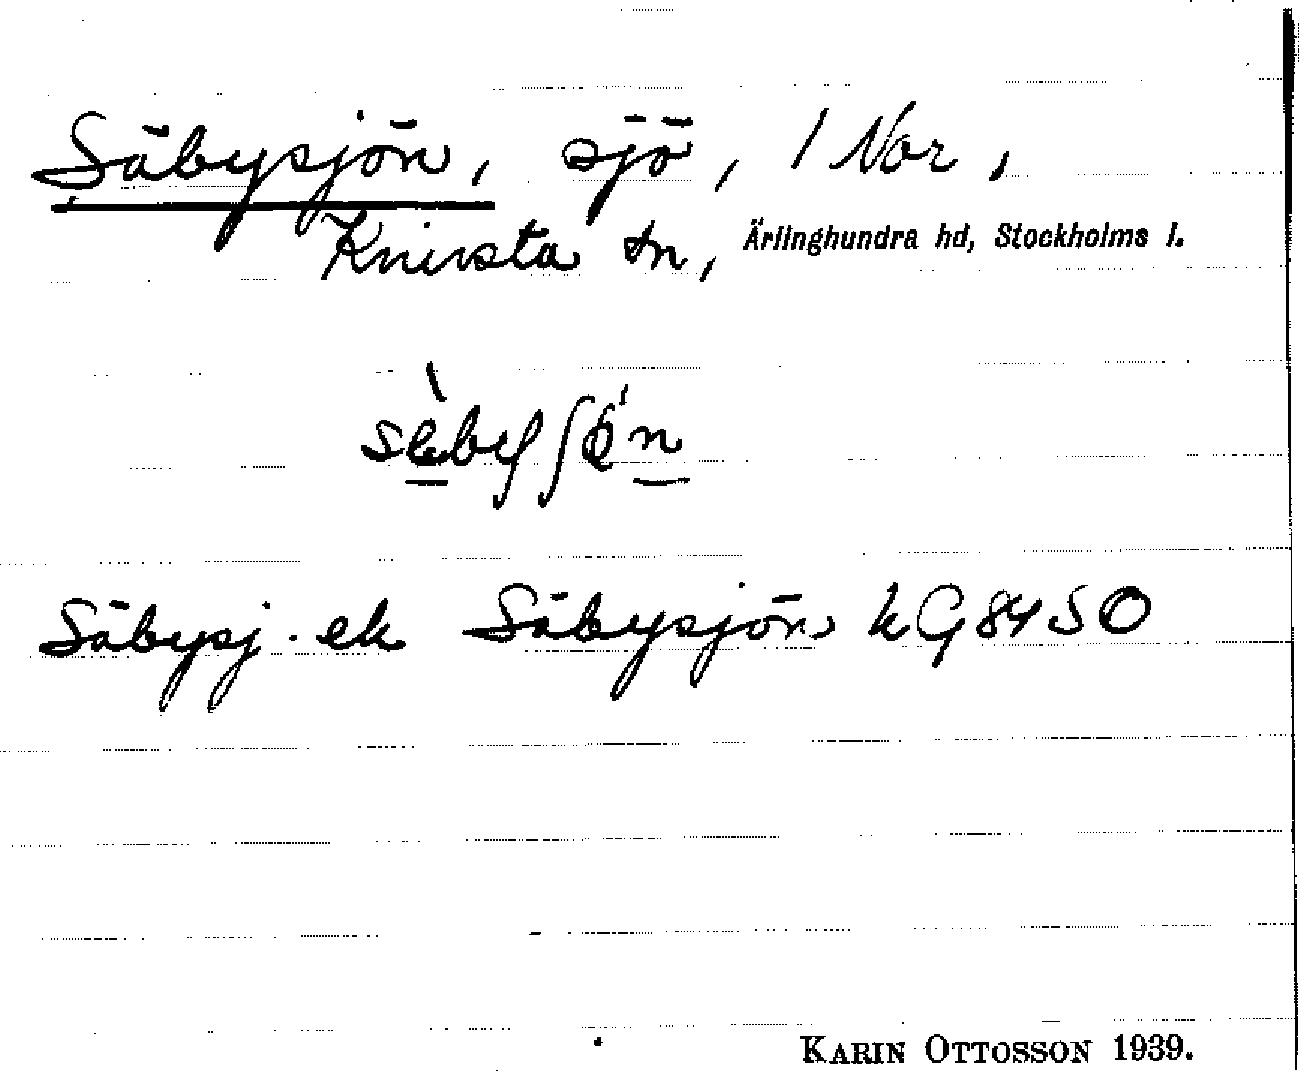 Säbysjön, sjö, 1 Nor,
Knivsta sn, Ärlinghundra hd, Stockholms l.
Säbysj. ek Säbysjön hG 84 SO
KARIN OTTOSSON 1939.